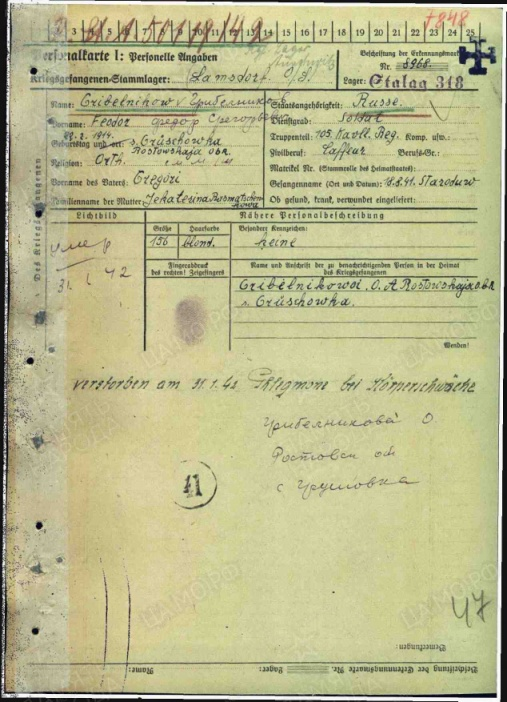 2 3 4 5 6 7 8 9 10 11 12 13 14 15 16 17 18 19 20 21 22 23 24 25
7848
Personalkarte I: Personelle Angaben
Kriegsgefangenen-Stammlager: Lamsdorf O/S.
Beschriftung der Erkennungsmarke
Nr. 5968.
Lager: Stalag 318
Des Kriegsgefangenen
Name: Gribelnikow
Vorname: Feodor Федор
Geburtstag und -ort: 1914. s. Grüschowka
Rostowskaja obl.
Religion: Orth.
Vorname des Vaters: Gregori
Familienname der Mutter: Jekaterina
Staatsangehörigkeit: Russe.
Dienstgrad: Soldat
Truppenteil: 105. Kavll. Reg. Komp. usw.:
Zivilberuf: Schlosser Berufs-Gr.:
Matrikel Nr. (Stammrolle des Heimatstaates):
Gefangennahme (Ort und Datum): 8.8.41. Starodub
Ob gesund, krank, verwundet eingeliefert:
Lichtbild
Nähere Personalbeschreibung
Größe Haarfarbe Besondere Kennzeichen:
156 blond. keine
умер
31. 1 42
Fingerabdruck
des rechten! Zeigefingers
Name und Anschrift der zu benachrichtigenden Person in der Heimat
des Kriegsgefangenen
Gribelnikowa, O. A Rostowskaja obl.
s. Grüschowka.
Wenden!
verstorben am 31.1.42 Phlegmone bei Körperschwäche
Грибелникова О
Ростовск об
с Грушовка
41
47
Bemerkungen:
Name: Lager: Beschriftung der Erkennungsmarke Nr.
ЦАМО РФ